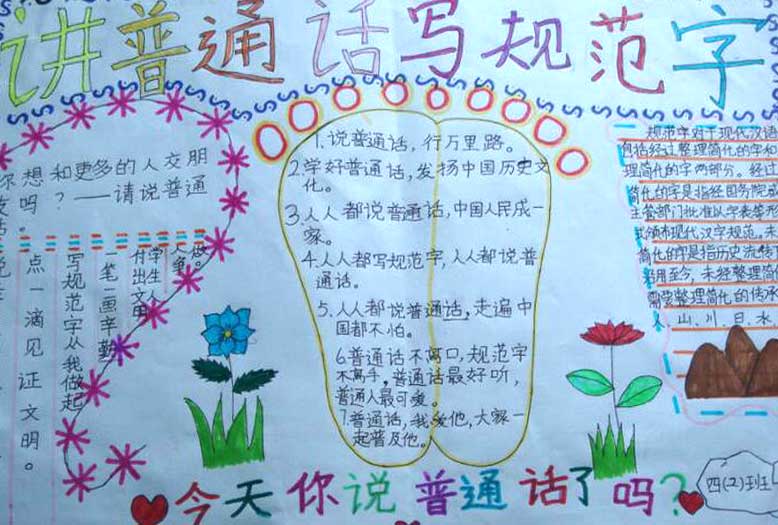 讲普通话写规范字
你想和更多的人交朋
友吗？——请说普通
话。
1.说普通话，行万里路。
2.学好普通话，发扬中国历史文
化。
3.人人都说普通话，中国人民成一
家。
4.人人都写规范字，人人都说普
通话。
5.人人都说普通话，走遍中
国都不怕。
6.普通话不离口，规范字
不离手。普通话最好听，
普通人最可爱。
7.普通话，我爱他，大家一
起普及他。
规范字对于现代汉语
理简化的字两部分。经过
简化的字是指经国务院
主管部门批准以字表等
式颁布现代汉字规范。未
简化的字是指历史流传
沿用至今，未经整理简
需要整理简化的传承
山、川、日、水
一笔一画辛勤
付出文明
写规范字从我做起
点一滴见证文明。
今天你说普通话了吗？
四(2)班